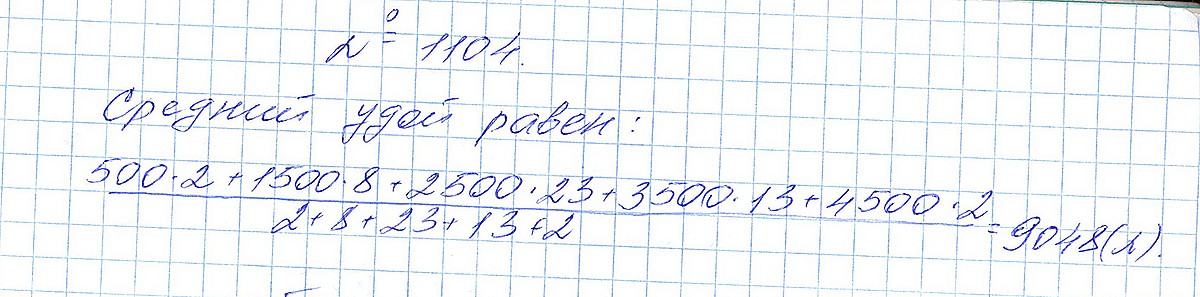 № 1104.
Средний удой равен:
500·2+1500·8+2500·23+3500·13+4500·2
2+8+23+13+2
=9048(л).